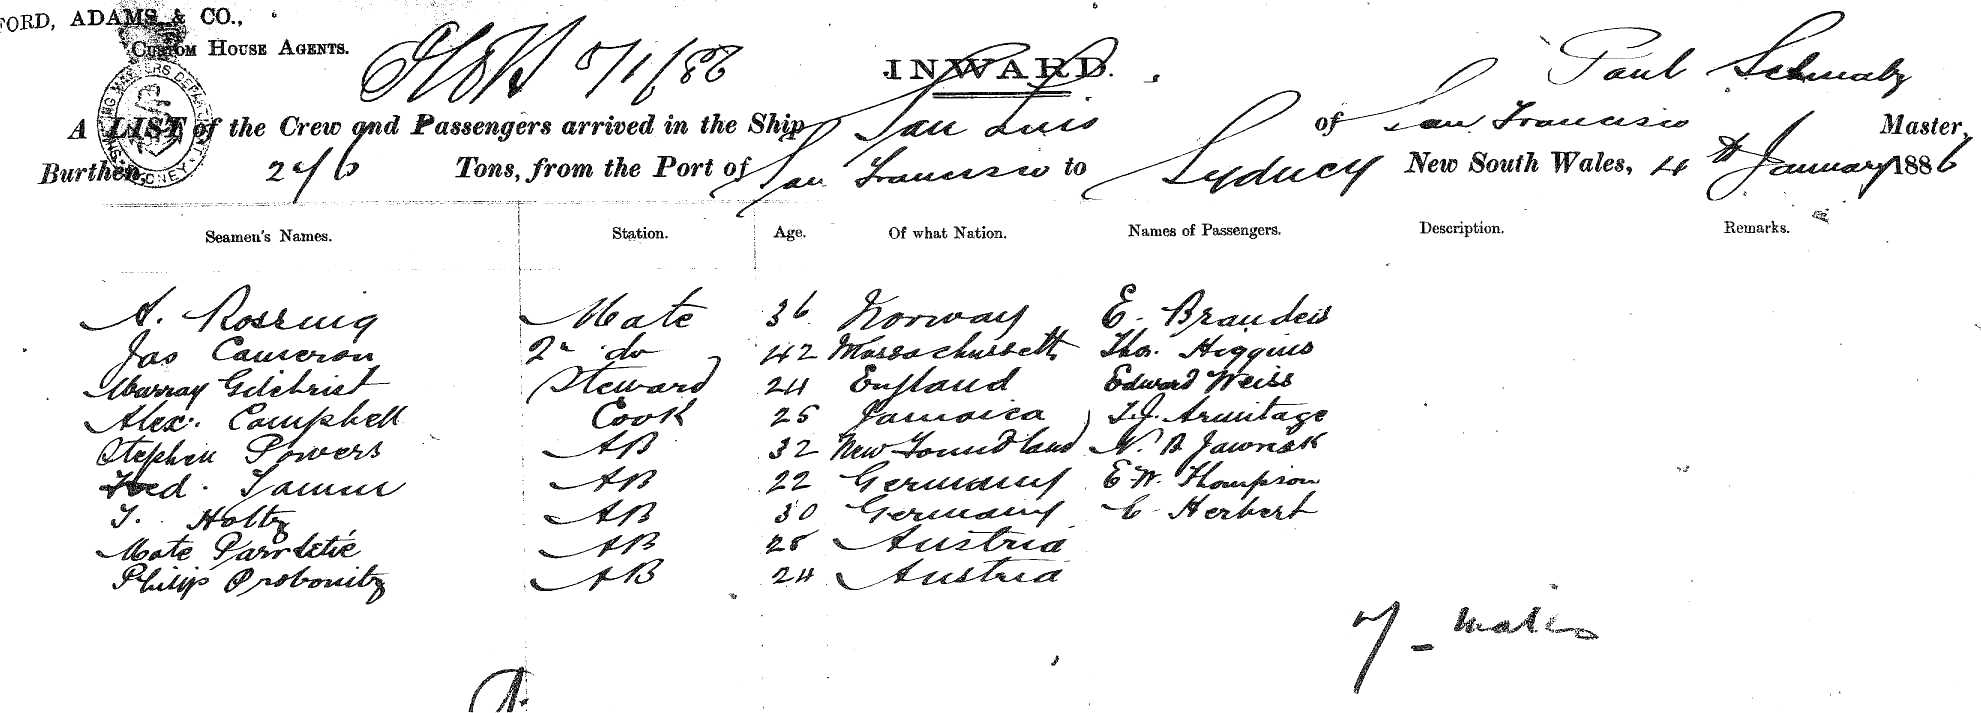 FORD, ADAMS & CO.,
CUSTOM HOUSE AGENTS.
5/1/86
INWARD.
Paul Schmalz
A LIST of the Crew and Passengers arrived in the Ship San Luis of San Francisco Master,
Burthen, 276 Tons, from the Port of San Francisco to Sydney New South Wales, 4th January 1886
Seamen's Names. Station. Age. Of what Nation. Names of Passengers. Description. Remarks.
A. Rossing Mate 36 Norway E. Brandeis
Jas Cameron 2nd do 42 Massachusetts Thos. Higgins
Murray Gilchrist Steward 24 England Edward Weiss
Alex. Campbell Cook 25 Jamaica T.J. Armitage
Stephen Powers AB 32 New Foundland N. B
Fred. AB 22 Germany E W. Thompson
T. Holtz AB 30 Germany C Herbert
Mate AB 28 Austria
Philip AB 24 Austria
7 - males